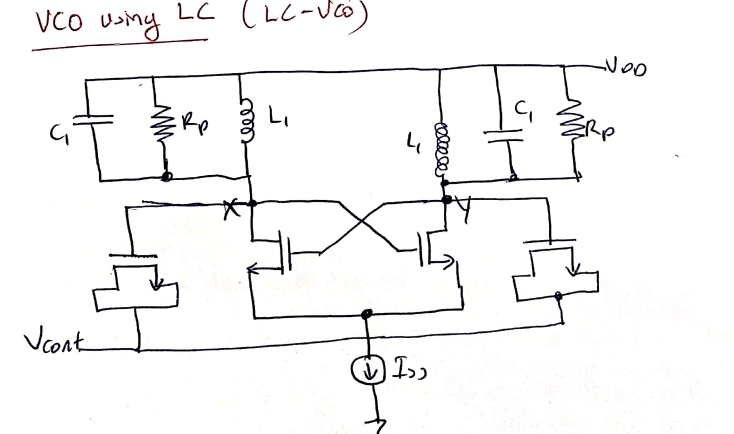 VCO using LC (LC-VCO)
VDD
C1 Rp L1 L1 C1 Rp
X Y
Vcont
ISS